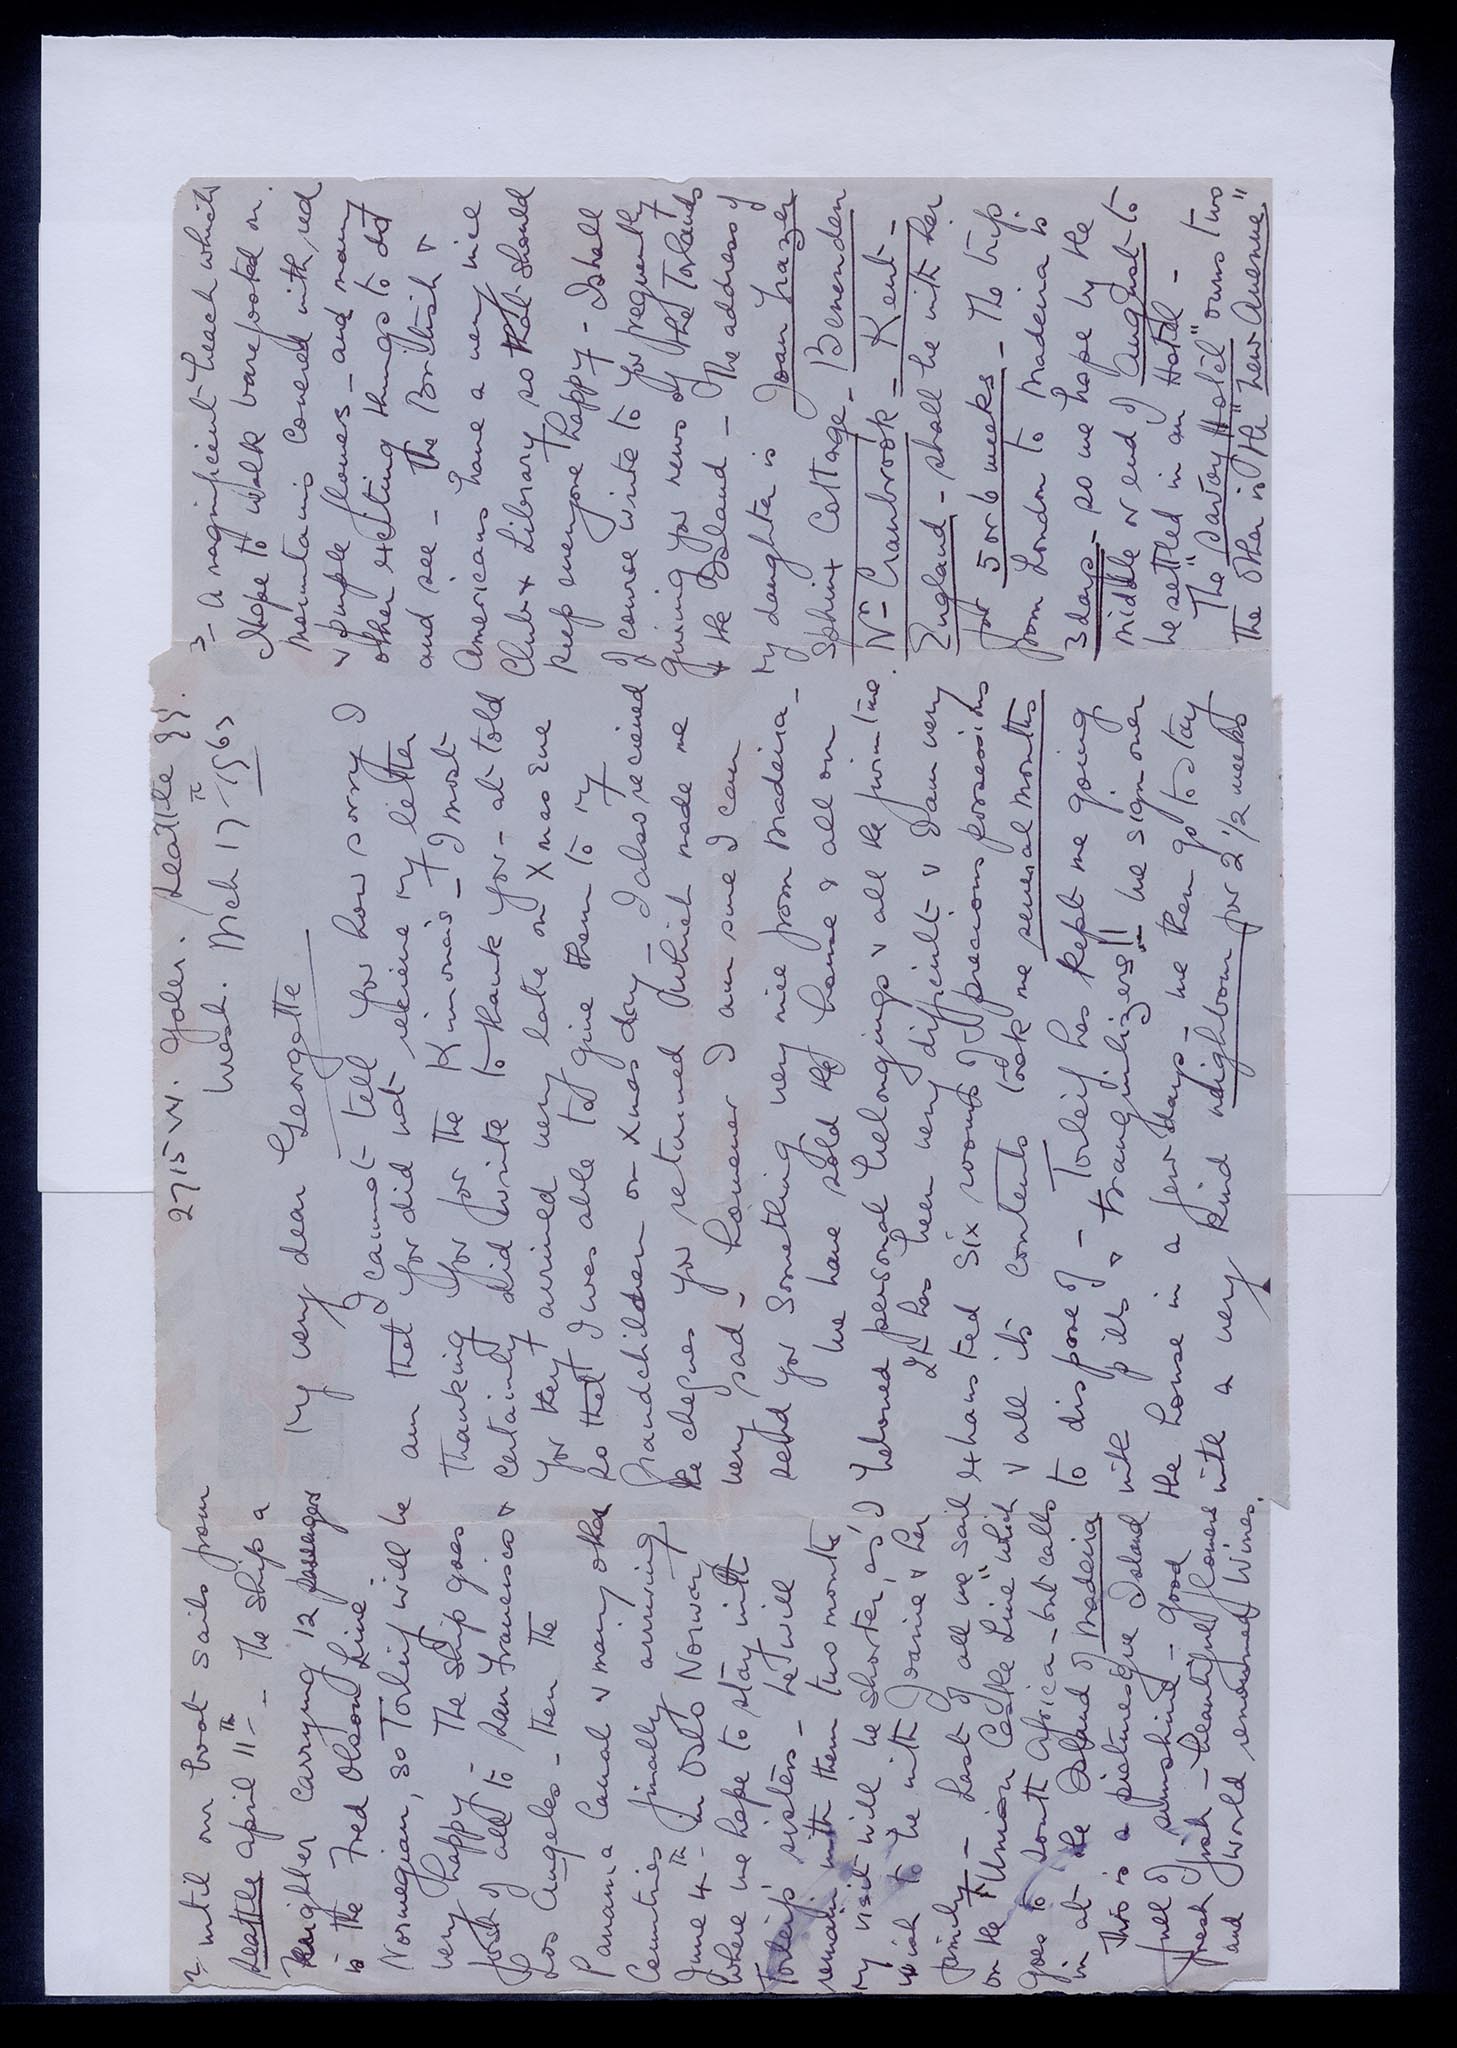 2715 W. Galer. Seattle 99.
Wash. Mch 17th 1963
My very dear Georgette
I cannot tell you how sorry I
am that you did not recieve my letter
thanking you for the Kimonas - I most
certainly did write to thank you - as I told
you they arrived very late on Xmas Eve
so that I was able to give them to my
Grandchildren on Xmas day - I also recieved
the cheques you returned which made me
very sad - however I am sure I can
send you something very nice from Madeira -
We have sold the house & all our
beloved personal belongings & all the furniture.
It has been very difficult & I am very
exhausted six rooms of precious possessions
& all its contents took me several months
to dispose of - Torleif has kept me going
with pills & tranquilizers!! We sign over
the house in a few days - we then go to stay
with a very kind neighbour for 2 1/2 weeks
2- until our boat sails from
Seattle April 11th - The ship a
freighter carrying 12 passengers
is the Fred Olsson Line
Norwegian, so Torleif will be
very happy - The ship goes
first of all to San Francisco &
Los Angeles - then the
Panama Canal & many other
Countries finally arriving
June 4th in Oslo Norway
where we hope to stay with
Torleif's sisters - he will
remain with them two months
my visit will be shorter, as I
wish to be with Joanie & her
family - Last of all we sail
on the "Union Castle Line" which
goes to South Africa - but calls
in at the Island of Madeira
This is a picturesque Island
full of sunshine - good
fresh fish - beautiful flowers
and world renowned Wines.
3- a magnificent beach which
I hope to walk barefooted on.
mountains covered with red
& purple flowers - and many
other exciting things to do
and see - the British &
Americans have a very nice
Club & Library so that should
keep everyone happy - I shall
of course write to you frequently
giving you news of the Torlands
& the Island - The address of
my daughter is Joan Frazer
Sphinx Cottage - Benenden
Nr - Cranbrook - Kent -
England - shall be with her
for 5 or 6 weeks - The trip
from London to Madeira is
3 days - so we hope by the
middle or end of August to
be settled in an Hotel -
The "Savoy Hotel" owns two
the other is the "New Avenue"